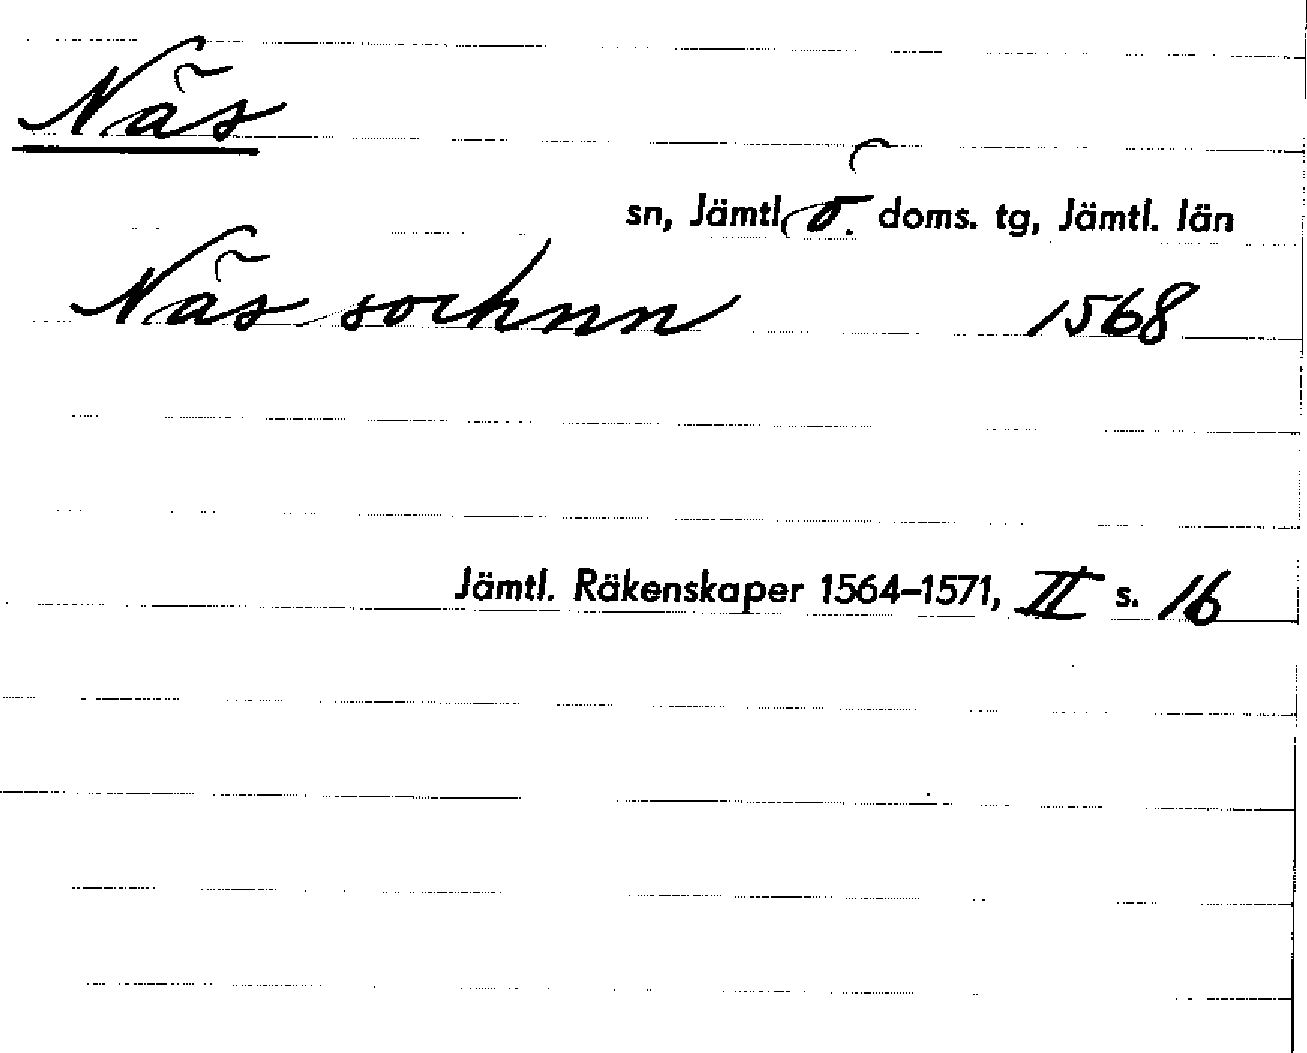 Näs
sn, Jämtl. ö. doms. tg, Jämtl. län
Näs socknn 1568
Jämtl. Räkenskaper 1564–1571, II s. 16